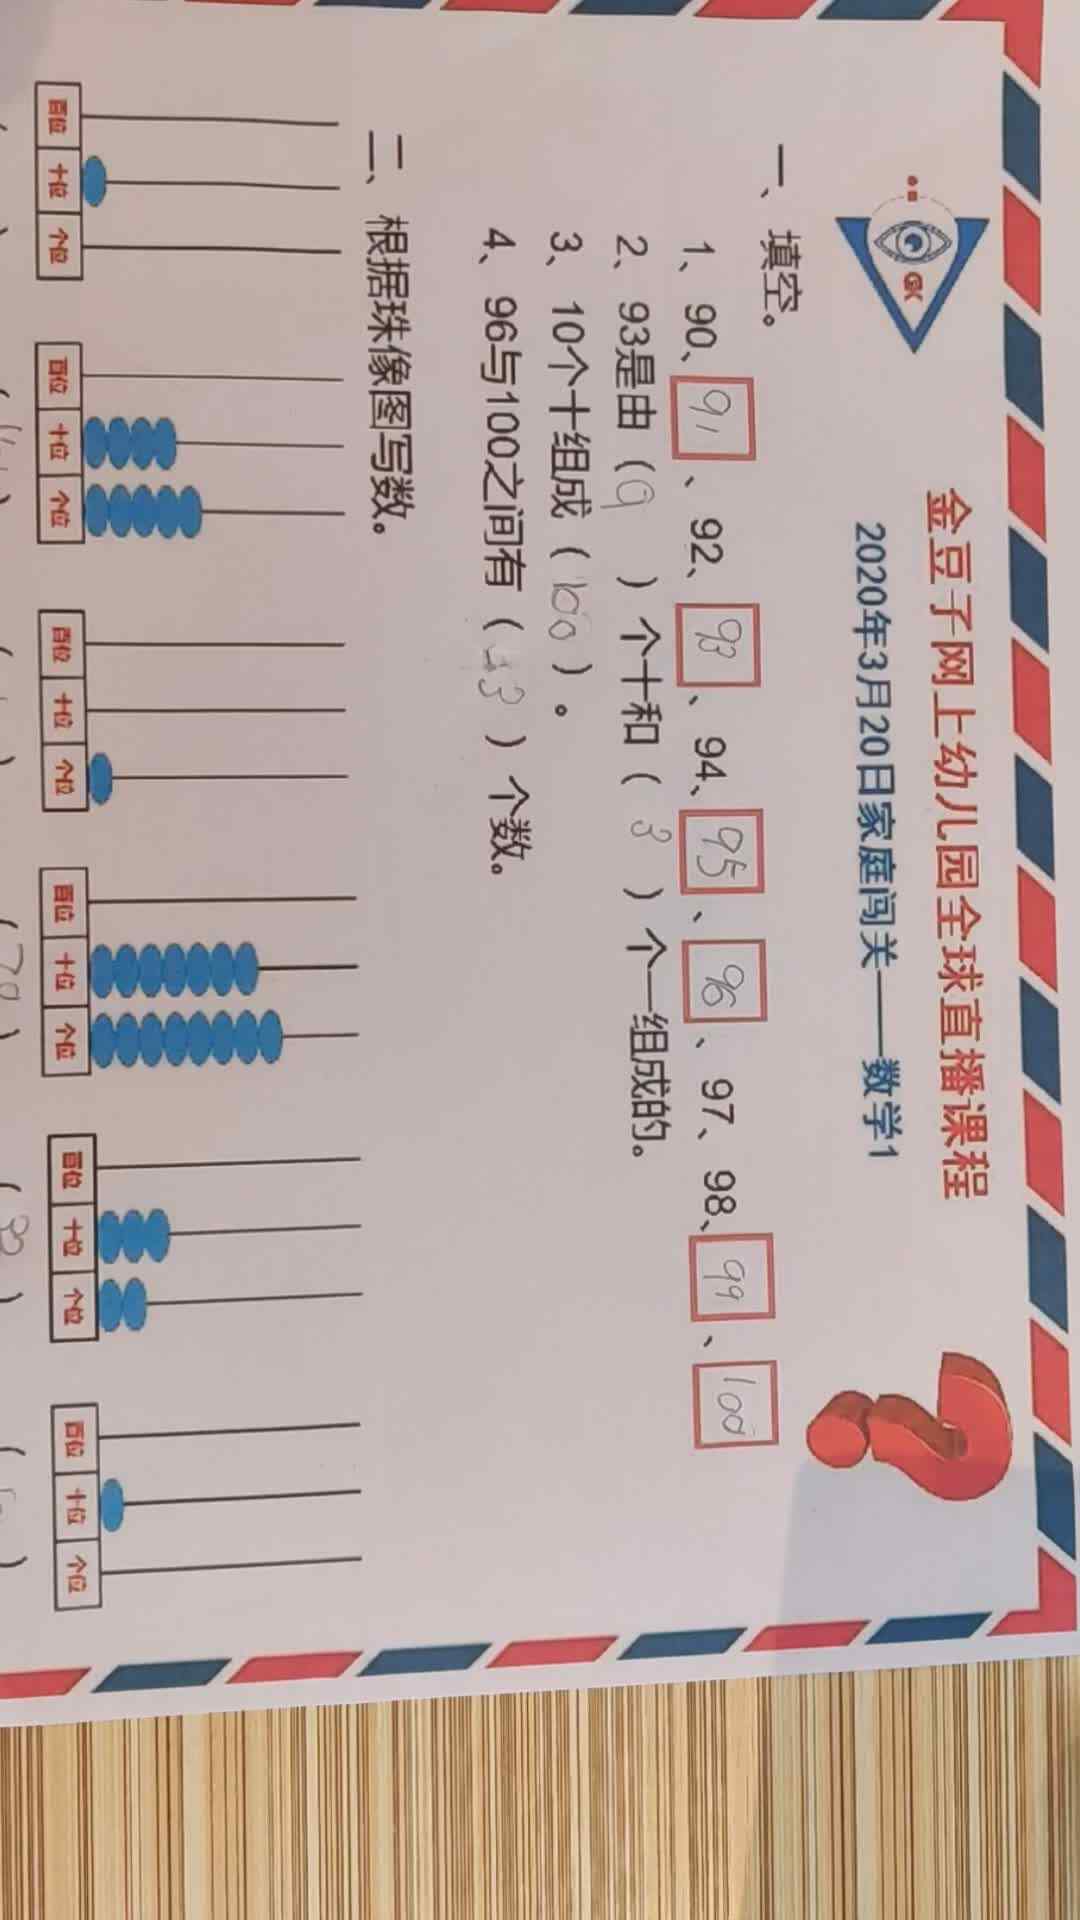 GK
金豆子网上幼儿园全球直播课程
2020年3月20日家庭闯关——数学1
一、填空。
1、90、91、92、93、94、95、96、97、98、99、100
2、93是由（9）个十和（3）个一组成的。
3、10个十组成（100）。
4、96与100之间有（3）个数。
二、根据珠像图写数。
百位 十位 个位 百位 十位 个位 百位 十位 个位 百位 十位 个位 百位 十位 个位 百位 十位 个位